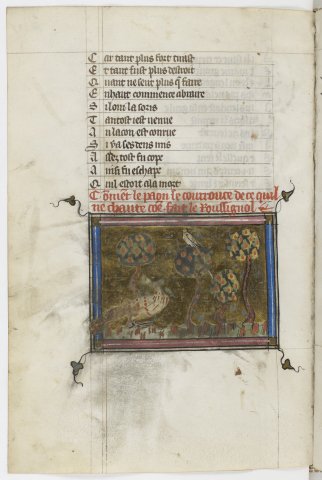 Car tant plus fort tuist
Et tant fust plus destroit
Quant ne seut plus que faire
En haut commence a braire
Si lont la soris
Tantost i est venue
A lacon est corue
Si i a ses dens mis
Asses tost su cope
Ainsi su eschape
Qu il estoit a la mort
Comment le paon se courrouce de ce quil
ne chante come fait le Roussignol